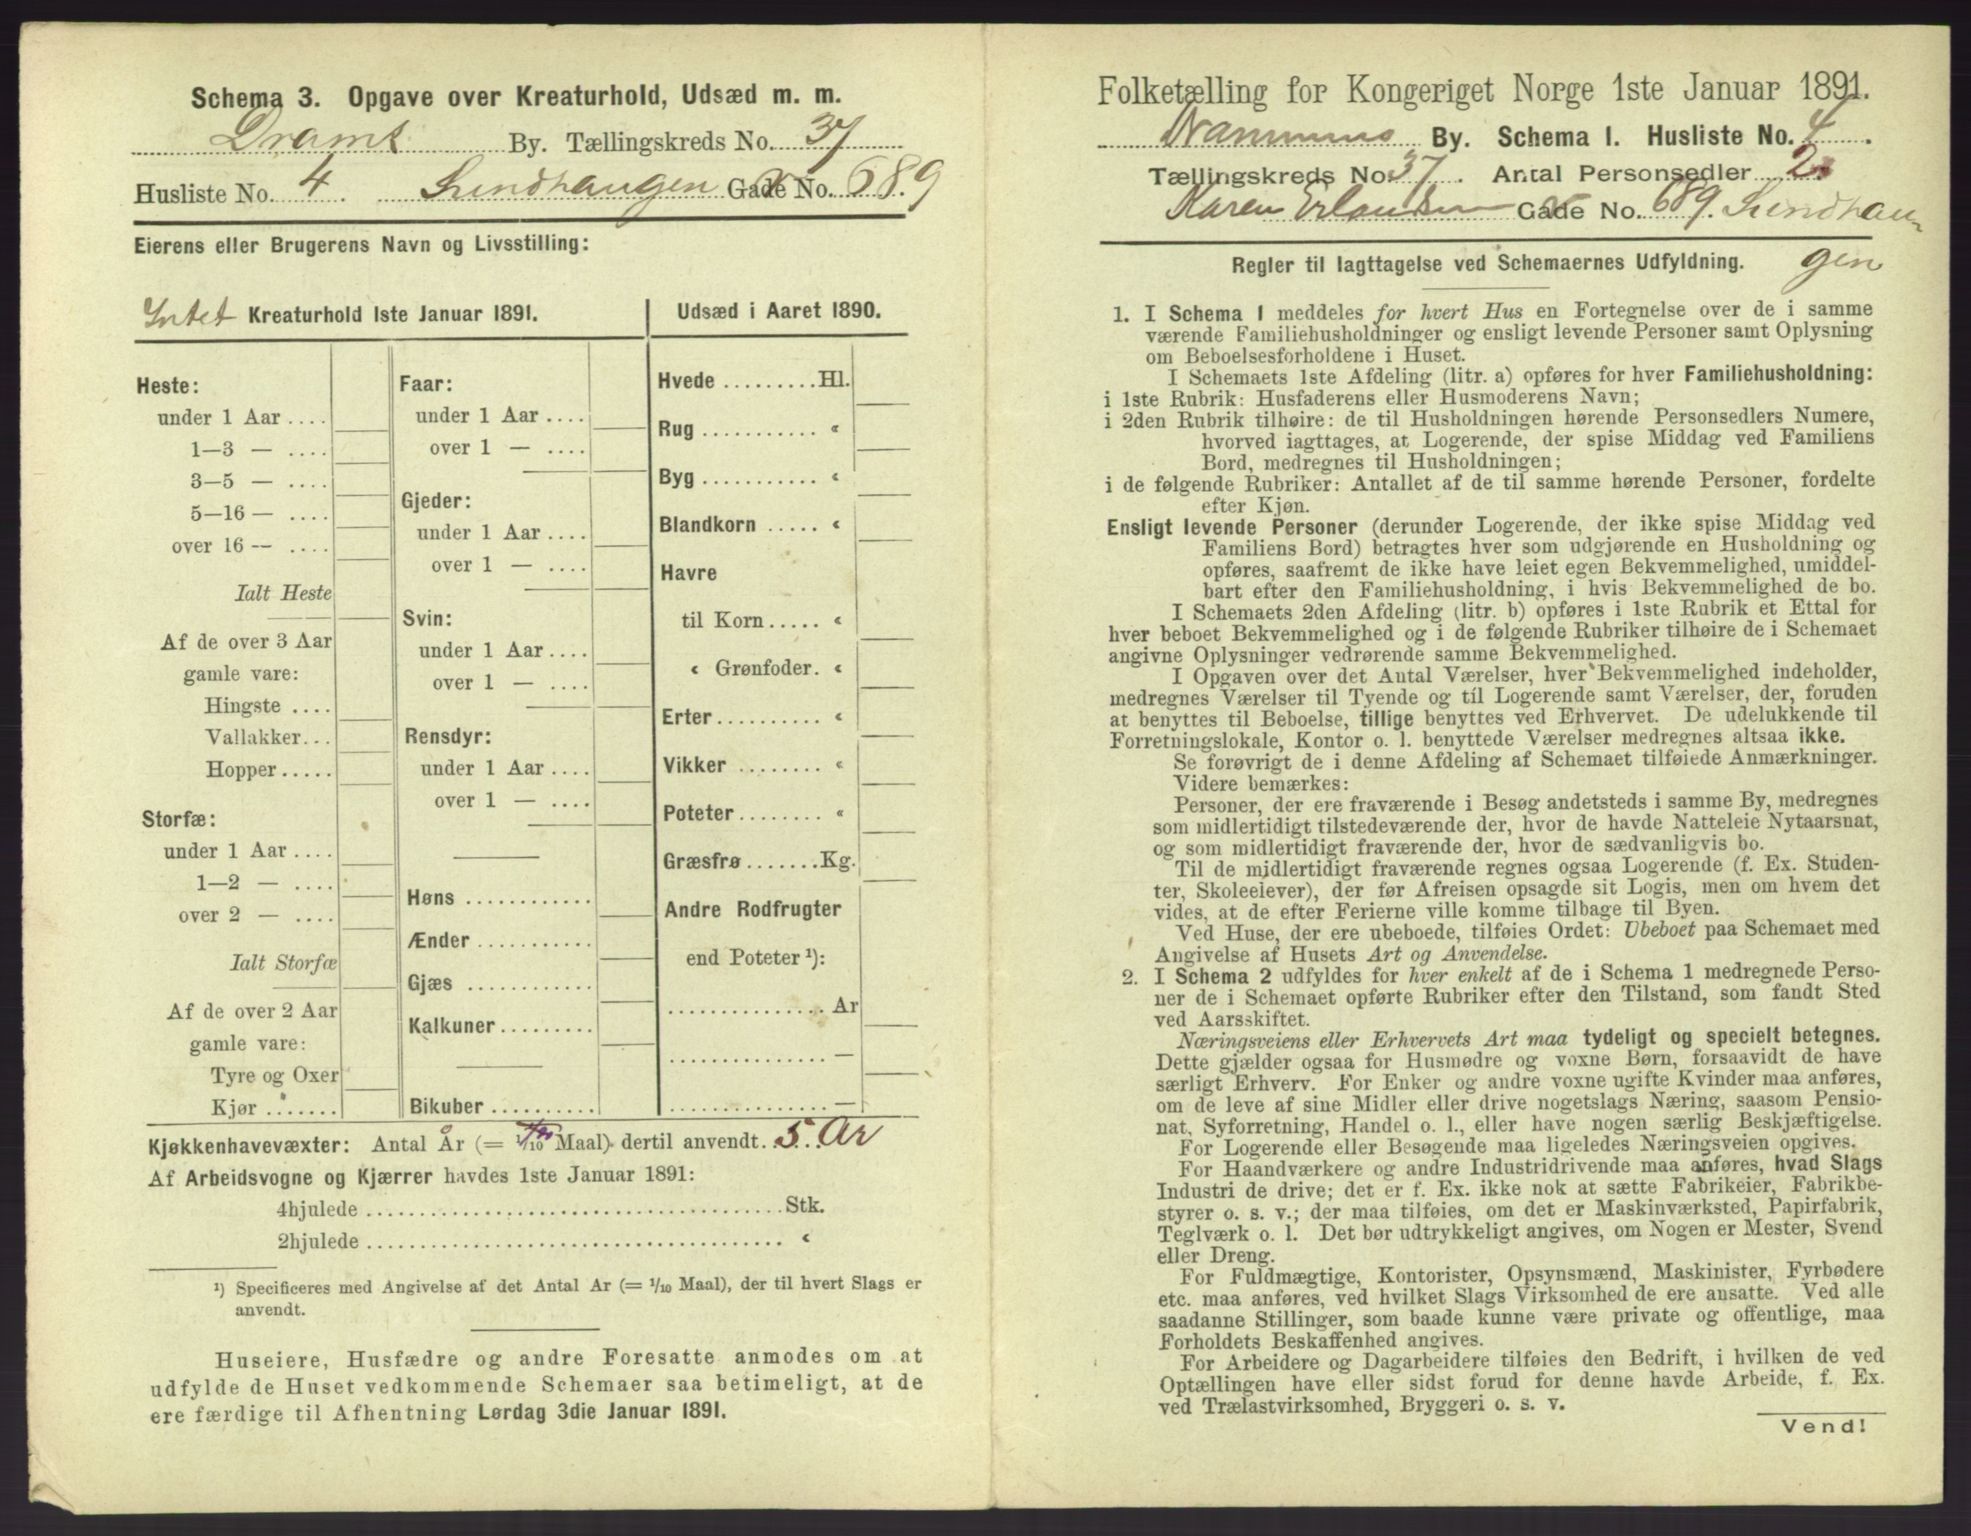 Schema 3. Opgave over Kreaturhold, Udsæd m. m.
Dramt By. Tællingskreds No. 37
Husliste No. 4. Sundhaugen Gade No. 689
Eierens eller Brugerens Navn og Livsstilling:
Intet Kreaturhold 1ste Januar 1891.
Heste:
under 1 Aar ....
1—3 — ....
3—5 — ....
5—16 — ....
over 16 — ....
Ialt Heste
Af de over 3 Aar
gamle vare:
Hingste ....
Vallakker...
Hopper.....
Storfæ:
under 1 Aar ....
1—2 — ....
over 2 — ....
Ialt Storfæ
Af de over 2 Aar
gamle vare:
Tyre og Oxer
Kjør .......
Faar:
under 1 Aar ....
over 1 — ....
Gjeder:
under 1 Aar ....
over 1 — ....
Svin:
under 1 Aar ....
over 1 — ....
Rensdyr:
under 1 Aar ....
over 1 — ....
Høns ............
Ænder ...........
Gjæs ............
Kalkuner .........
Bikuber ..........
Udsæd i Aaret 1890.
Hvede .........Hl.
Rug ........... «
Byg ........... «
Blandkorn ..... «
Havre
til Korn ..... «
« Grønfoder. «
Erter.......... «
Vikker ........ «
Poteter........ «
Græsfrø .......Kg.
Andre Rodfrugter
end Poteter ¹):
............... Ar
............... —
............... —
Kjøkkenhavevæxter: Antal År (= 1/10 Maal) dertil anvendt. 5 Ar
Af Arbeidsvogne og Kjærrer havdes 1ste Januar 1891:
4hjulede ........................................Stk.
2hjulede ........................................ «
¹) Specificeres med Angivelse af det Antal Ar (= 1/10 Maal), der til hvert Slags er
anvendt.
Huseiere, Husfædre og andre Foresatte anmodes om at
udfylde de Huset vedkommende Schemaer saa betimeligt, at de
ere færdige til Afhentning Lørdag 3die Januar 1891.
Folketælling for Kongeriget Norge 1ste Januar 1891.
Drammens By. Schema 1. Husliste No. 4.
Tællingskreds No. 37. Antal Personsedler 2.
Karen Erlandsen Gade No. 689. Sundhau-
gen
Regler til Iagttagelse ved Schemaernes Udfyldning.
1. I Schema 1 meddeles for hvert Hus en Fortegnelse over de i samme
værende Familiehusholdninger og ensligt levende Personer samt Oplysning
om Beboelsesforholdene i Huset.
I Schemaets 1ste Afdeling (litr. a) opføres for hver Familiehusholdning:
i 1ste Rubrik: Husfaderens eller Husmoderens Navn;
i 2den Rubrik tilhøire: de til Husholdningen hørende Personsedlers Numere,
hvorved iagttages, at Logerende, der spise Middag ved Familiens
Bord, medregnes til Husholdningen;
i de følgende Rubriker: Antallet af de til samme hørende Personer, fordelte
efter Kjøn.
Ensligt levende Personer (derunder Logerende, der ikke spise Middag ved
Familiens Bord) betragtes hver som udgjørende en Husholdning og
opføres, saafremt de ikke have leiet egen Bekvemmelighed, umiddel-
bart efter den Familiehusholdning, i hvis Bekvemmelighed de bo.
I Schemaets 2den Afdeling (litr. b) opføres i 1ste Rubrik et Ettal for
hver beboet Bekvemmelighed og i de følgende Rubriker tilhøire de i Schemaet
angivne Oplysninger vedrørende samme Bekvemmelighed.
I Opgaven over det Antal Værelser, hver Bekvemmelighed indeholder,
medregnes Værelser til Tyende og til Logerende samt Værelser, der, foruden
at benyttes til Beboelse, tillige benyttes ved Erhvervet. De udelukkende til
Forretningslokale, Kontor o. l. benyttede Værelser medregnes altsaa ikke.
Se forøvrigt de i denne Afdeling af Schemaet tilføiede Anmærkninger.
Videre bemærkes:
Personer, der ere fraværende i Besøg andetsteds i samme By, medregnes
som midlertidigt tilstedeværende der, hvor de havde Natteleie Nytaarsnat,
og som midlertidigt fraværende der, hvor de sædvanligvis bo.
Til de midlertidigt fraværende regnes ogsaa Logerende (f. Ex. Studen-
ter, Skoleelever), der før Afreisen opsagde sit Logis, men om hvem det
vides, at de efter Ferierne ville komme tilbage til Byen.
Ved Huse, der ere ubeboede, tilføies Ordet: Ubeboet paa Schemaet med
Angivelse af Husets Art og Anvendelse.
2. I Schema 2 udfyldes for hver enkelt af de i Schema 1 medregnede Perso-
ner de i Schemaet opførte Rubriker efter den Tilstand, som fandt Sted
ved Aarsskiftet.
Næringsveiens eller Erhvervets Art maa tydeligt og specielt betegnes.
Dette gjælder ogsaa for Husmødre og voxne Børn, forsaavidt de have
særligt Erhverv. For Enker og andre voxne ugifte Kvinder maa anføres,
om de leve af sine Midler eller drive nogetslags Næring, saasom Pensio-
nat, Syforretning, Handel o. l., eller have nogen særlig Beskjæftigelse.
For Logerende eller Besøgende maa ligeledes Næringsveien opgives.
For Haandværkere og andre Industridrivende maa anføres, hvad Slags
Industri de drive; det er f. Ex. ikke nok at sætte Fabrikeier, Fabrikbe-
styrer o. s. v.; der maa tilføies, om det er Maskinværksted, Papirfabrik,
Teglværk o. l. Det bør udtrykkeligt angives, om Nogen er Mester, Svend
eller Dreng.
For Fuldmægtige, Kontorister, Opsynsmænd, Maskinister, Fyrbødere
etc. maa anføres, ved hvilket Slags Virksomhed de ere ansatte. Ved alle
saadanne Stillinger, som baade kunne være private og offentlige, maa
Forholdets Beskaffenhed angives.
For Arbeidere og Dagarbeidere tilføies den Bedrift, i hvilken de ved
Optællingen have eller sidst forud for denne havde Arbeide, f. Ex.
ved Trælastvirksomhed, Bryggeri o. s. v.
Vend!